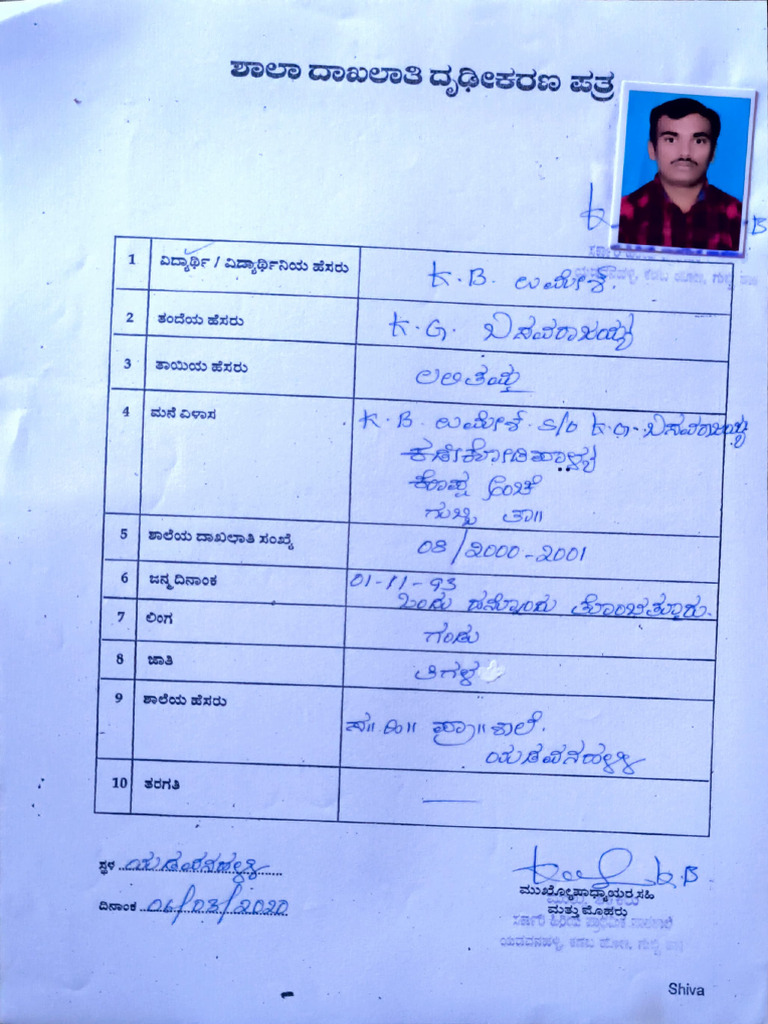 ಶಾಲಾ ದಾಖಲಾತಿ ದೃಢೀಕರಣ ಪತ್ರ
1 ವಿದ್ಯಾರ್ಥಿ / ವಿದ್ಯಾರ್ಥಿನಿಯ ಹೆಸರು K.B. ಉಮೇಶ್.
2 ತಂದೆಯ ಹೆಸರು K.G. ಬಸವರಾಜಯ್ಯ
3 ತಾಯಿಯ ಹೆಸರು ಲಲಿತಮ್ಮ
4 ಮನೆ ವಿಳಾಸ K.B. ಉಮೇಶ್. S/o K.G. ಬಸವರಾಜಯ್ಯ
ಗುಬ್ಬಿ ತಾ||
5 ಶಾಲೆಯ ದಾಖಲಾತಿ ಸಂಖ್ಯೆ 08/2000-2001
6 ಜನ್ಮ ದಿನಾಂಕ 01-11-93
ಒಂದು ಹನ್ನೊಂದು ತೊಂಬತ್ಮೂರು.
7 ಲಿಂಗ ಗಂಡು
8 ಜಾತಿ ತಿಗಳ
9 ಶಾಲೆಯ ಹೆಸರು ಸ|| ಹಿ|| ಪ್ರಾ|| ಶಾಲೆ.
ಯಡವನಹಳ್ಳಿ
10 ತರಗತಿ
ಸ್ಥಳ ಯಡವನಹಳ್ಳಿ
ದಿನಾಂಕ 06/03/2020
K.B
ಮುಖ್ಯೋಪಾಧ್ಯಾಯರ ಸಹಿ
ಮತ್ತು ಮೊಹರು
ಸರ್ಕಾರಿ ಹಿರಿಯ ಪ್ರಾಥಮಿಕ ಪಾಠಶಾಲೆ
ಯಡವನಹಳ್ಳಿ, ಕಡಬ ಹೋಬಳಿ, ಗುಬ್ಬಿ ತಾ||
Shiva